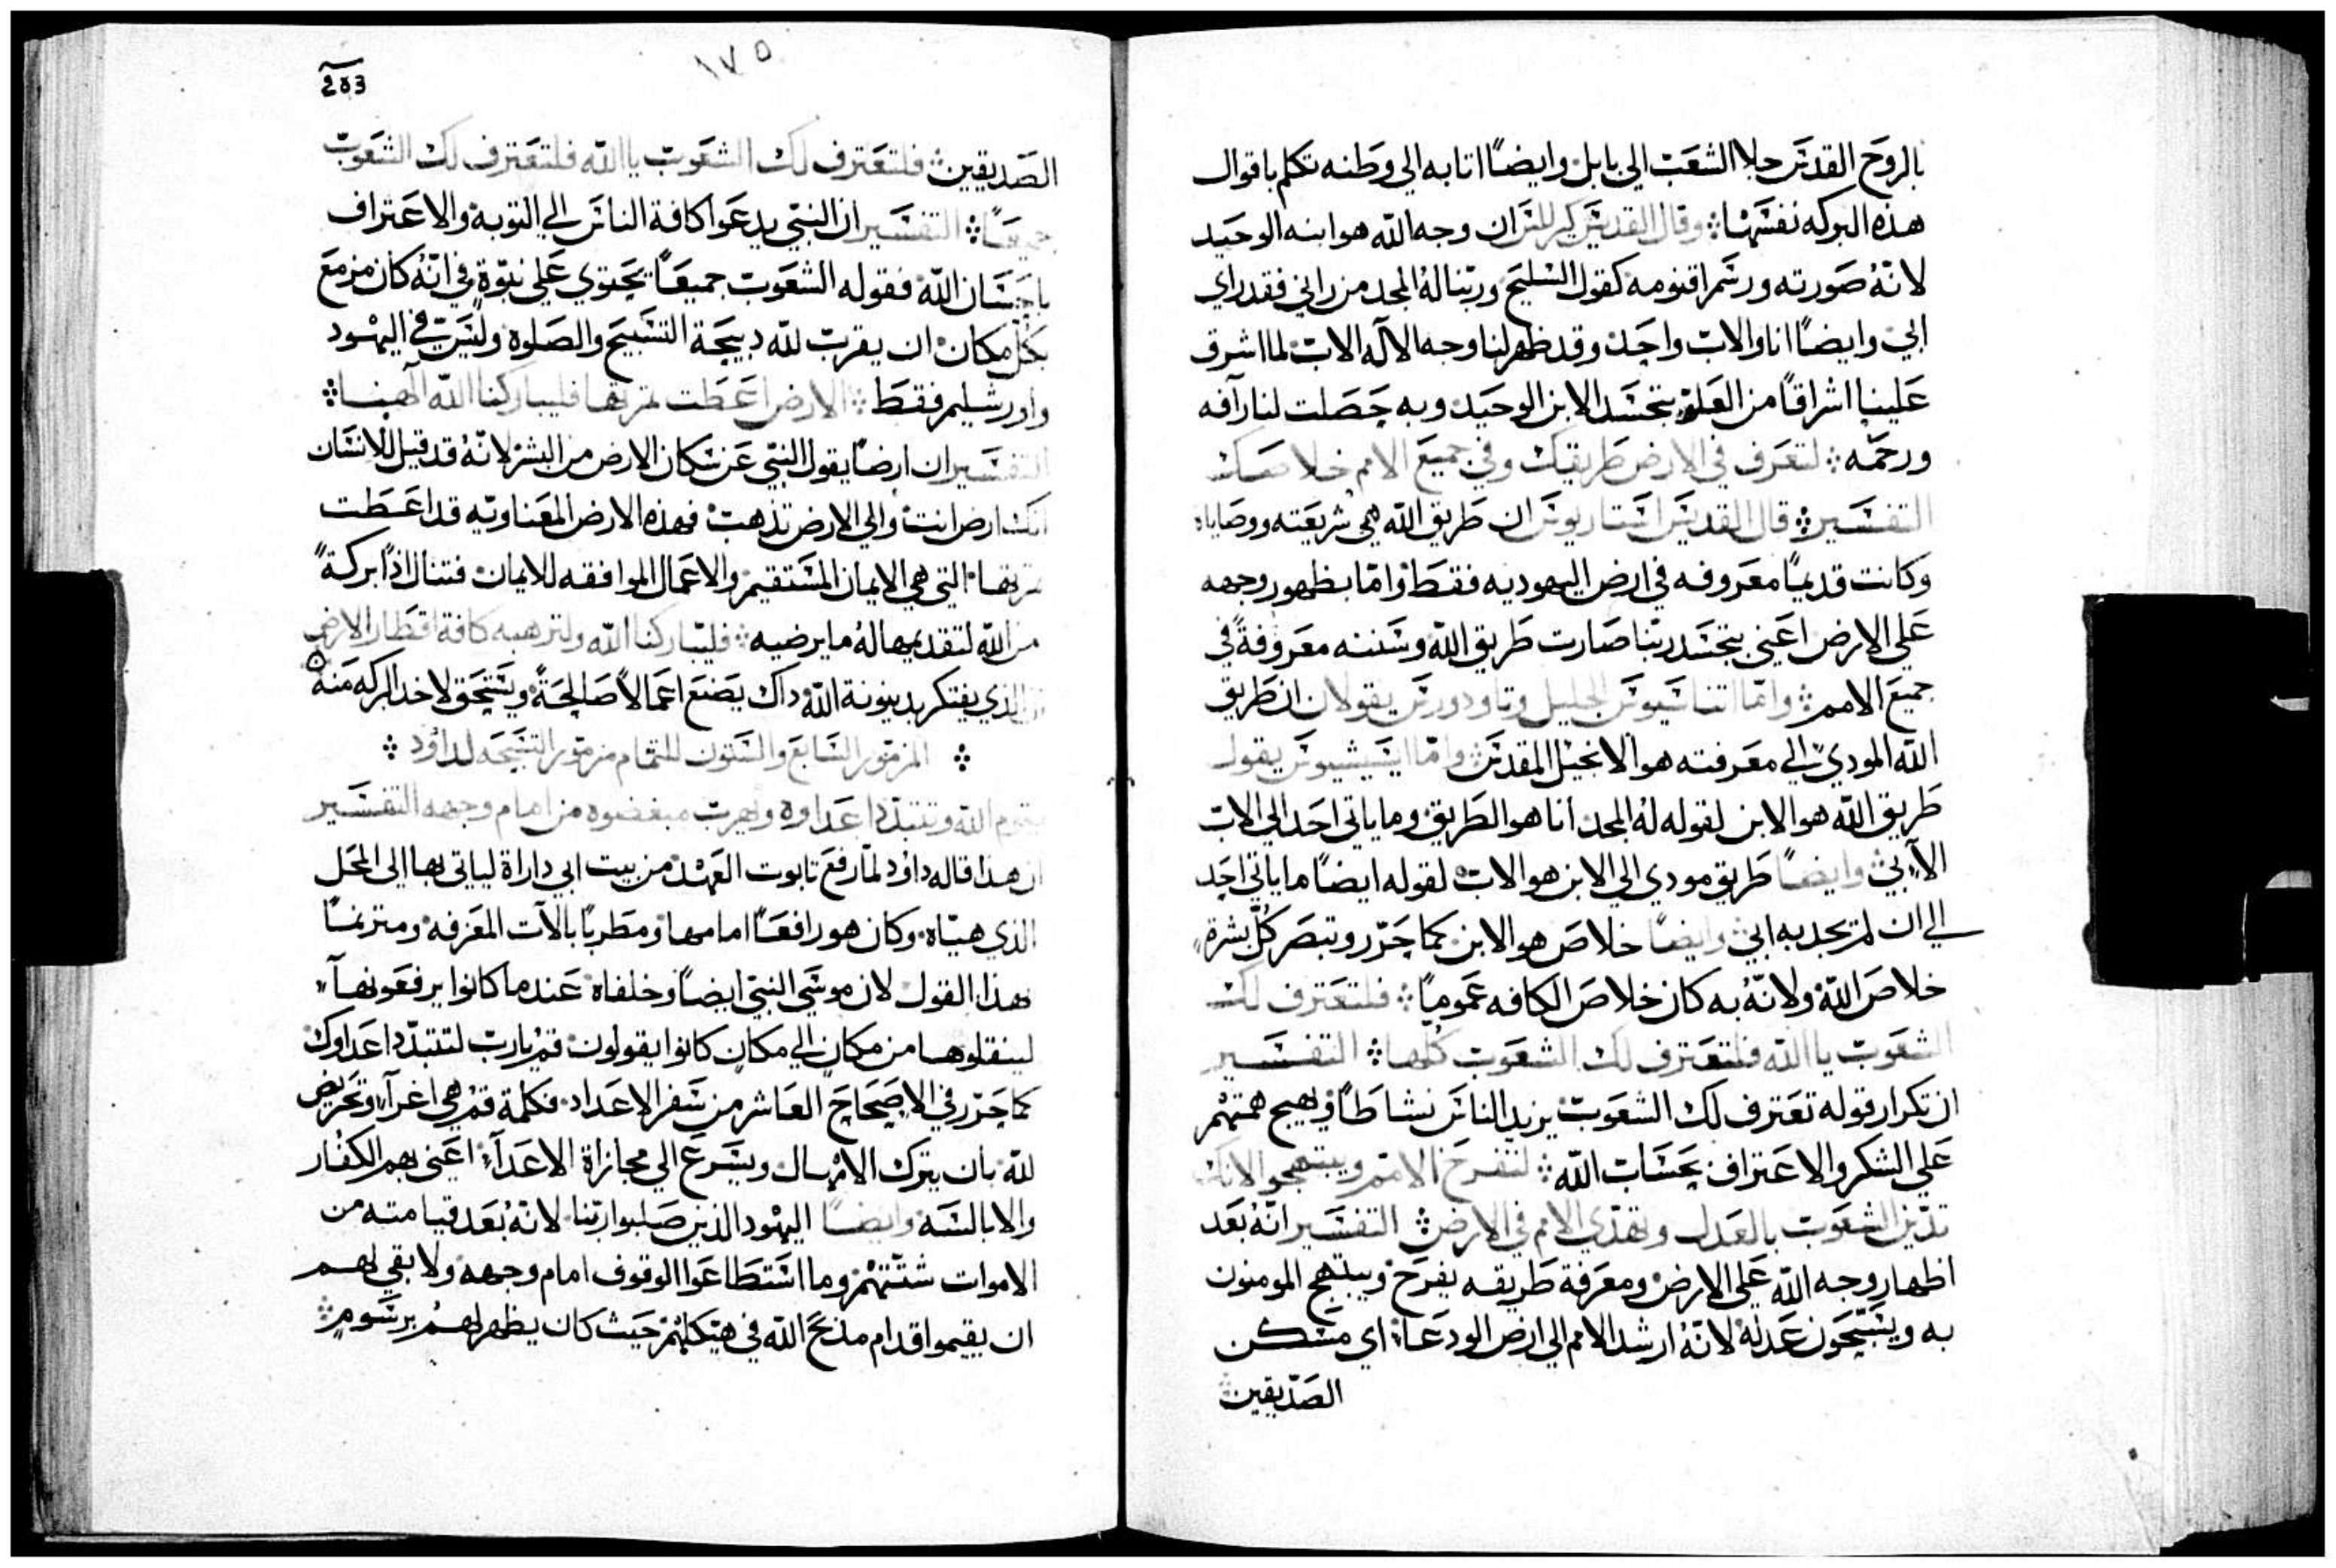 بالروح القدس جلا الشعب الى بابل وايضًا اتابه الي وطنه تكلم باقوال
هذه البركه نفسها ۞ وقال القديس كيرللس ان وجه الله هو ابنه الوحيد
لانّهُ صورته ورسم اقنومه كقول السليح وربّنا لهُ المجد من راني فقد راي
ابي وايضًا انا والاب واحد وقد ظهر لنا وجه الاله الاب لما اشرف
علينا اشراقًا من العلو بتجسد الابن الوحيد وبه حصلت لنا رآفه
ورحمه ۞ لتعرف في الارض طريقك وفي جميع الامم خلاصك
التفسير ۞ قال القديس استاريوس ان طريق الله هي شريعته ووصاياه
وكانت قديمًا معروفه في ارض اليهوديه فقط وامّا بظهور وجهه
علي الارض اعني بتجسد ربّنا صارت طريق الله وسننه معروفةً في
جميع الامم ۞ وامّا اتناسيوس الجليل وتاودورس يقولان ان طريق
الله المودي الي معرفته هو الانجيل المقدس ۞ وامّا ايسيشيوس يقول
طريق الله هو الابن لقوله لهُ المجد انا هو الطريق وما ياتي احد الي الاب
الآبي وايضًا طريق مودي الي الابن هو الاب لقوله ايضًا ما ياتي احد
الي ان لم يجدبه ابي وايضًا خلاص هو الابن كما حرّر وتبصر كلّ بشرة
خلاص الله ولانّهُ به كان خلاص الكافه عموميًا ۞ فلتعترف لك
الشعوب ياالله فلتعترف لك الشعوب كلها ۞ التفسير
ان تكرار قوله تعترف لك الشعوب يزيد الناس نشاطًا ويهيج همتهم
علي الشكر والاعتراف بحسات الله ۞ لتفرح الامم ويبتهجوا لانك
تدين الشعوب بالعدل وتهدي الامم في الارض ۞ التفسير انّهُ بعد
اظهار وجه الله علي الارض ومعرفة طريقه يفرح ويبتهج المومنون
به ويسبّحون عدله لانّهُ ارشد الامم الي ارض الودعاء اي مسكن
الصدّيقين
١٧٥
الصّديقين ۞ فلتعترف لك الشعوب ياالله فلتعترف لك الشعوب
جميعًا ۞ التفسير ان النبي يدعوا كافة الناس الي التوبة والاعتراف
باحسان الله فقوله الشعوب جميعًا يحتوي علي نبوّة في انّهُ كان مزمع
بكل مكان ان يقرب لله دبيحة التسبيح والصلوة وليس في اليهود
واورشليم فقط ۞ الارض اعطت ثمرتها فليباركنا الله الهنا ۞
التفسير ان ارضًا يقول النبي عن سكان الارض من البشر لانّهُ قد قيل للانسان
انك ارض انت والي الارض تذهب فهذه الارض المعناويّه قد اعطت
ثمرتها التي هي الايمان المستقيم والاعمال الموافقه للايمان فتنال اذًا بركةً
من الله لتقديمها لهُ ما يرضيه ۞ فليباركنا الله ولترهبه كافة اقطار الارض
الذي يفتكر بدينونة الله داك يصنع اعمالاً صالحةً ويستحق لاخد البركه منه
۞ المزمور السابع والستون للتمام مزمور التسبحه لداوُد ۞
يقوم الله وتتبدّد اعداوه ويهرب مبغضوه من امام وجهه التفسير
ان هذا قاله داوُد لمّا رفع تابوت العهد من بيت ابي داراة لياتي بها الى المحل
الذي هيّاه وكان هو رافعًا امامها ومطربًا بالآت المعزفه ومترنمًا
بهذا القول لان موسي النبي ايضًا وخلفاه عندما كانوا يرفعونها
لينقلوها من مكان الي مكان كانوا يقولون قم يارب لتتبدّد اعداوك
كما حرّر في الاصحاح العاشر من سفر الاعداد فكلمة قم هي اغرآء وتحريض
لله بان يترك الامهال ويسرع الي مجازاة الاعدآء اعني بهم الكفار
والابالسه وايضًا اليهود الذين صلبوا ربّنا لانّهُ بعد قيامته من
الاموات شتّتهم وما استطاعوا الوقوف امام وجهه ولا بقي لهم
ان يقيموا قدام مذبح الله في هيكلهم حيث كان يظهر لهم برسوم